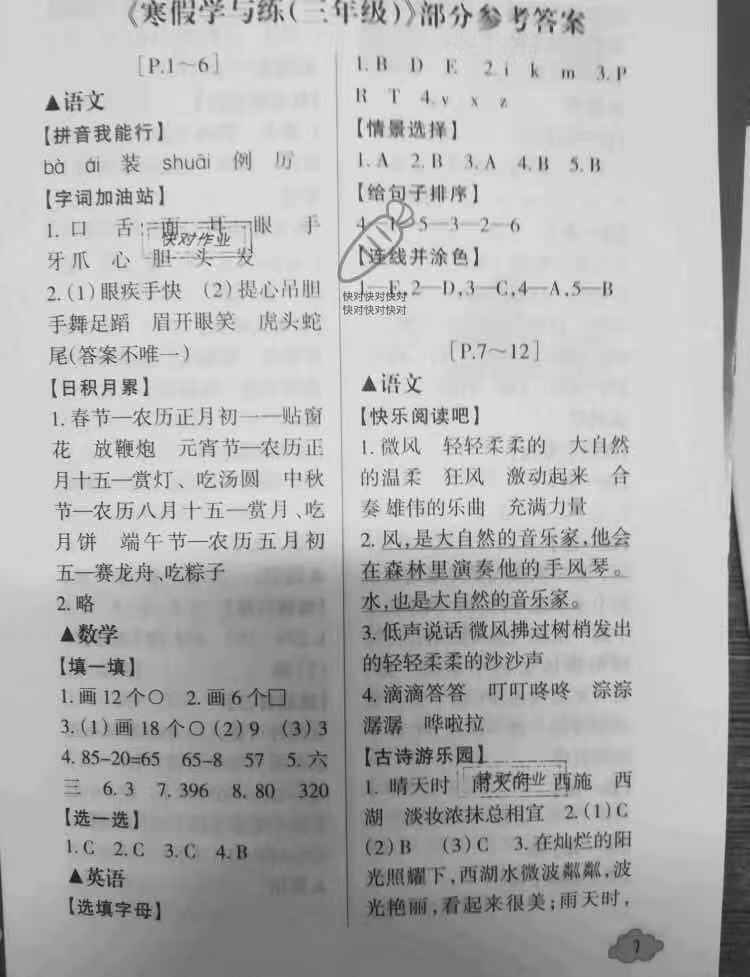 《寒假学与练(三年级)》部分参考答案
[P.1～6]
▲语文
【拼音我能行】
bà ái 装 shuāi 例 厉
【字词加油站】
1. 口 舌 面 耳 眼 手
牙 爪 心 胆 头 发
快对作业
2. (1) 眼疾手快 (2) 提心吊胆
手舞足蹈 眉开眼笑 虎头蛇
尾(答案不唯一)
【日积月累】
1. 春节—农历正月初一——贴窗
花 放鞭炮 元宵节—农历正
月十五—赏灯、吃汤圆 中秋
节—农历八月十五—赏月、吃
月饼 端午节—农历五月初
五—赛龙舟、吃粽子
2. 略
▲数学
【填一填】
1. 画12个○ 2. 画6个□
3. (1) 画18个○ (2) 9 (3) 3
4. 85-20=65 65-8 57 5. 六
三 6. 3 7. 396 8. 80 320
【选一选】
1. C 2. C 3. C 4. B
▲英语
【选填字母】
1. B D E 2. i k m 3. P
R T 4. v x z
【情景选择】
1. A 2. B 3. A 4. B 5. B
【给句子排序】
4—1—5—3—2—6
【连线并涂色】
1—E, 2—D, 3—C, 4—A, 5—B
快对快对快对
快对快对快对
[P.7～12]
▲语文
【快乐阅读吧】
1. 微风 轻轻柔柔的 大自然
的温柔 狂风 激动起来 合
奏 雄伟的乐曲 充满力量
2. 风,是大自然的音乐家,他会
在森林里演奏他的手风琴。
水,也是大自然的音乐家。
3. 低声说话 微风拂过树梢发出
的轻轻柔柔的沙沙声
4. 滴滴答答 叮叮咚咚 淙淙
潺潺 哗啦拉
【古诗游乐园】
1. 晴天时 雨天时 西施 西
快对作业
湖 淡妆浓抹总相宜 2. (1) C
(2) B (3) C 3. 在灿烂的阳
光照耀下,西湖水微波粼粼,波
光艳丽,看起来很美;雨天时,
1